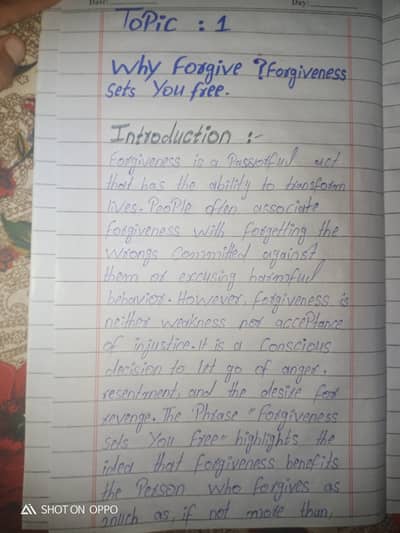 Date: Day:
Topic : 1
Why Forgive ? Forgiveness
sets You free.
Introduction :-
Forgiveness is a act
that has the ability to transform
lives. People often associate
forgiveness with forgetting the
wrongs committed against
them or excusing harmful
behavior. However, forgiveness is
neither weakness nor acceptance
of injustice. It is a conscious
decision to let go of anger,
resentment, and the desire for
revenge. The Phrase "Forgiveness
sets You free" highlights the
idea that forgiveness benefits
the Person who forgives as
much as, if not more than,
SHOT ON OPPO